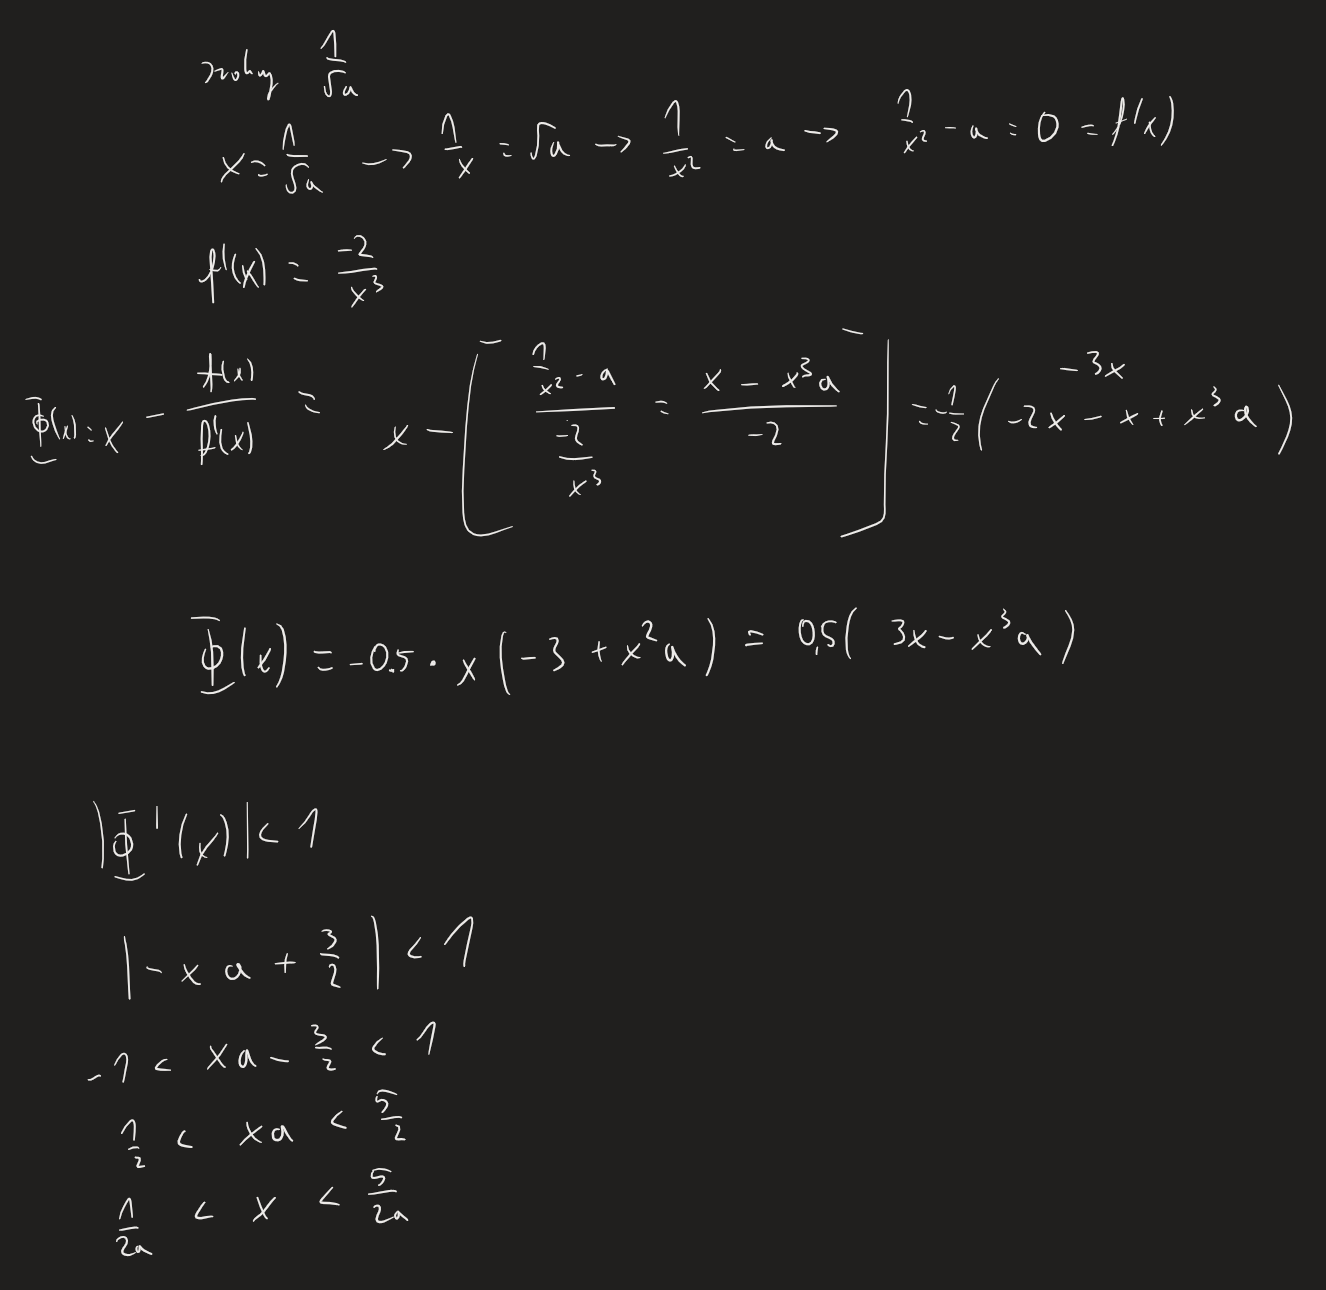 zróbmy 1/√a
x = 1/√a → 1/x = √a → 1/x² = a → 1/x² - a = 0 = f'(x)
f'(x) = -2/x³
Φ(x) = x - f(x)/f'(x) = x - [ (1/x² - a)/(-2/x³) = (x - x³a)/(-2) ] = -1/2 ( -2x - x + x³a )
-3x
Φ(x) = -0.5 · x ( -3 + x²a ) = 0,5( 3x - x³a )
|Φ'(x)| < 1
| - x a + 3/2 | < 1
-1 < xa - 3/2 < 1
1/2 < xa < 5/2
1/2a < x < 5/2a